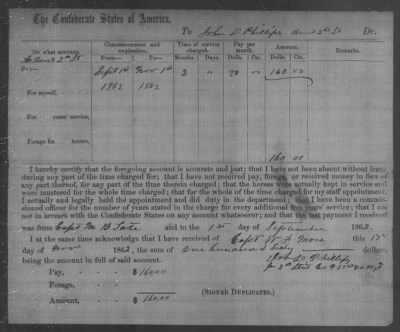 The Confederate States of America,
To John D. Phillips Brevt 2nd Lt Dr.
On what account. Commencement and expiration. Time of service charged. Pay per month. Amount. Remarks.
From— To— Months. Days. Dolls. Cts. Dolls. Cts.
As Brevt 2nd Lt
Pay— Sept 1st Nov 1st 2 " 80 00 160 00
1862 1862
For myself,
For years' service,
Forage for horses,
160 00
I hereby certify that the foregoing account is accurate and just; that I have not been absent without leave
during any part of the time charged for; that I have not received pay, forage, or received money in lieu of
any part thereof, for any part of the time therein charged; that the horses were actually kept in service and
were mustered for the whole time charged; that for the whole of the time charged for my staff appointment,
I actually and legally held the appointment and did duty in the department; that I have been a commis-
sioned officer for the number of years stated in the charge for every additional five years' service; that I am
not in arrears with the Confederate States on any account whatsoever; and that the last payment I received
was from Capt M B Tate and to the 1st day of September 1862.
I at the same time acknowledge that I have received of Capt W F this 15
day of Nov 1862, the sum of One hundred & Sixty dollars,
being the amount in full of said account.
John D. Phillips
Pay, $ 160.00
Forage,
Amount, $ 160.00
(SIGNED DUPLICATES.)